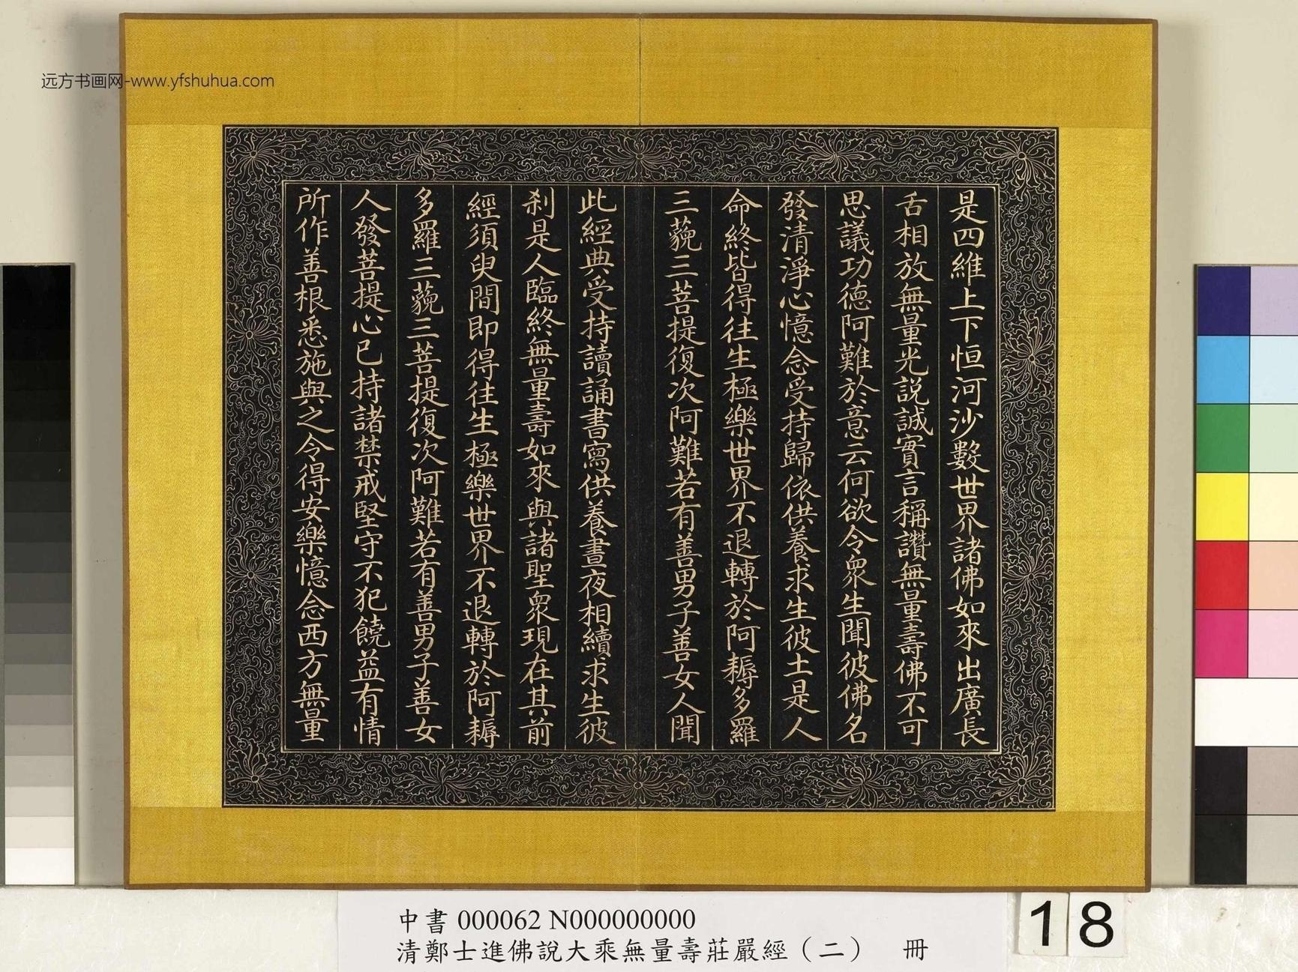 远方书画网-www.yfshuhua.com
是四維上下恒河沙數世界諸佛如來出廣長
舌相放無量光說誠實言稱讚無量壽佛不可
思議功德阿難於意云何欲令衆生聞彼佛名
發清淨心憶念受持歸依供養求生彼土是人
命終皆得往生極樂世界不退轉於阿耨多羅
三藐三菩提復次阿難若有善男子善女人聞
此經典受持讀誦書寫供養晝夜相續求生彼
刹是人臨終無量壽如來與諸聖衆現在其前
經須臾間即得往生極樂世界不退轉於阿耨
多羅三藐三菩提復次阿難若有善男子善女
人發菩提心已持諸禁戒堅守不犯饒益有情
所作善根悉施與之令得安樂憶念西方無量
中書 000062 N000000000
清鄭士進佛說大乘無量壽莊嚴經（二） 冊
18